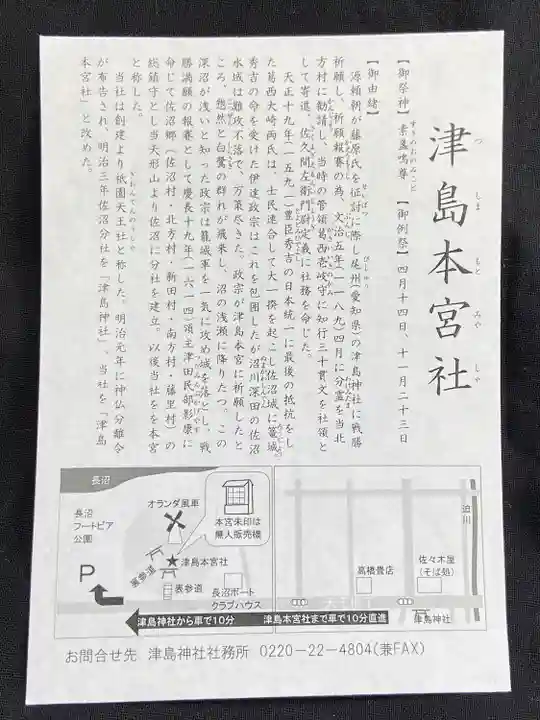 津島本宮社
つしまもとみやしゃ
【御祭神】素盞嗚尊 【御例祭】四月十四日、十一月二十三日
すさのおのみこと
【御由緒】
源頼朝が藤原氏を征討に際し尾州(愛知県)の津島神社に戦勝
祈願し、祈願報賽の為、文治五年(一一八九)四月に分霊を当北
方村に勧請し、当時の管領葛西壱岐守に知行三十貫文を社領と
して寄進、佐久間左衛門尉定義に社務を命じた。
天正十九年(一五九一)豊臣秀吉の日本統一に最後の抵抗をし
た葛西大崎両氏は、士民連合して大一揆を起こし佐沼城に籠城。
秀吉の命を受けた伊達政宗はこれを包囲したが沼川深田の佐沼
水城は難攻不落で、万策尽きた。政宗が津島本宮に祈願したと
ころ、忽然と白鷺の群れが飛来し、沼の浅瀬に降りたつ。この
深沼が浅いと知った政宗は籠城軍を一気に攻め城を落とし、戦
勝満願の報賽として慶長十九年(一六一四)領主津田民部影康に
命じて佐沼郷(佐沼村・北方村・新田村・南方村・藤里村)の
総鎮守とし当天形山より佐沼に分社を建立。以後当社をを本宮
と称した。
当社は創建より祇園天王社と称した。明治元年に神仏分離令
が布告され、明治三年佐沼分社を「津島神社」、当社を「津島
本宮社」と改めた。
長沼
オランダ風車
長沼
フートピア
公園
本宮朱印は
無人販売機
津島本宮社
裏参道
表参道
P
長沼ボート
クラブハウス
迫川
高橋畳店
佐々木屋
(そば処)
津島神社
津島神社から車で10分
津島本宮社まで車で10分直進
お問合せ先 津島神社社務所 0220-22-4804(兼FAX)